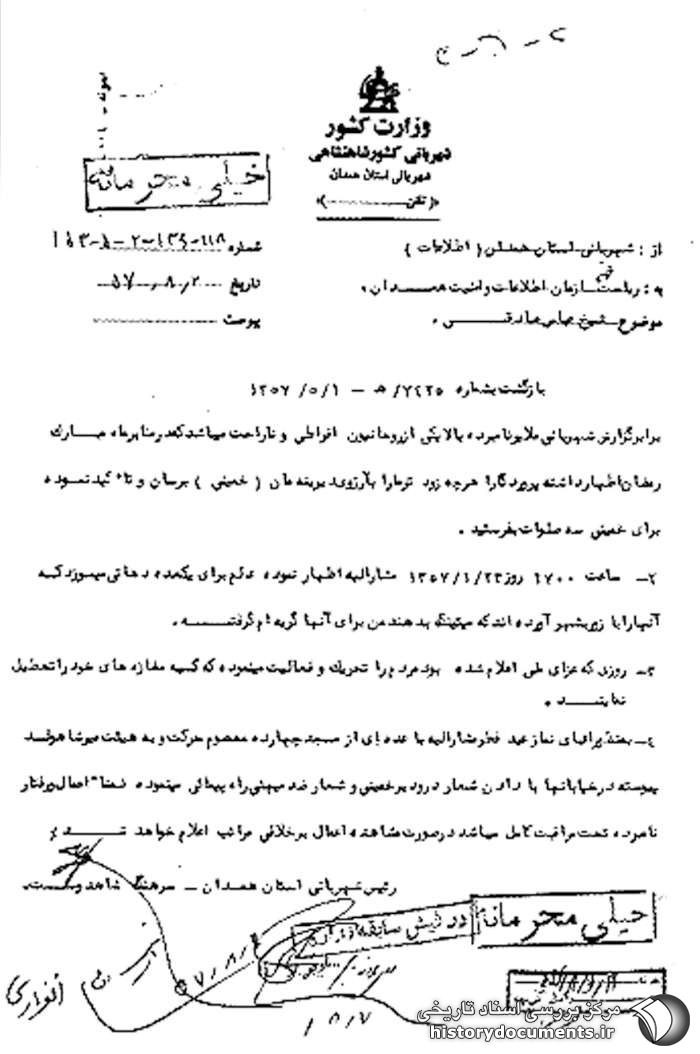 ۲ - ۳
نمونه
وزارت کشور
شهربانی کشور شاهنشاهی
شهربانی استان همدان
«( تلفن )»
خیلی محرمانه
از : شهربانی استان همدان ( اطلاعات )
شماره
به : ریاست سازمان اطلاعات و امنیت همدان .
تاریخ ۵۷٫۸٫۲
موضوع - شیخ عباس صادقی .
پیوست
بازگشت بشماره ۷۴۲۵/ه‍ - ۱۳۵۷/۵/۱
برابر گزارش شهربانی ملایر نامبرده بالا یکی از روحانیون افراطی و ناراحت میباشد که در منابر ماه مبارک
رمضان اظهار داشته پروردگارا هرچه زود تر ما را بآرزوی دیرینه مان ( خمینی ) برسان و تأکید نموده
برای خمینی سه صلوات بفرستید .
۲- ساعت ۱۷۰۰ روز مشارالیه اظهار نموده دلم برای یکعده دهاتی میسوزد که
آنها را با زور بشهر آورده اند که میتینگ بدهند من برای آنها گریه ام گرفتـــه .
۳- روزی که عزای ملی اعلام شده بود مردم را تحریک و فعالیت مینموده که کسبه مغازه های خود را تعطیل
نمایند .
۴- بعد از برپائی نماز عید فطر مشارالیه با عده ای از مسجد چهارده معصوم حرکت و به هیئت میر شاهولد
پیوسته در خیابانها با دادن شعار درود بر خمینی و شعار ضد میهنی راه پیمائی مینموده ضمناً اعمال و رفتار
نامبرده تحت مراقبت کامل میباشد در صورت مشاهده اعمال بر خلافی مراتب اعلام خواهد شـــد
رئیس شهربانی استان همدان - سرهنگ شاهدوست
خیلی محرمانه
در فیش سابقه دارد
انواری
۵۷/۸/
۸/۷
مرکز بررسی اسناد تاریخی
historydocuments.ir